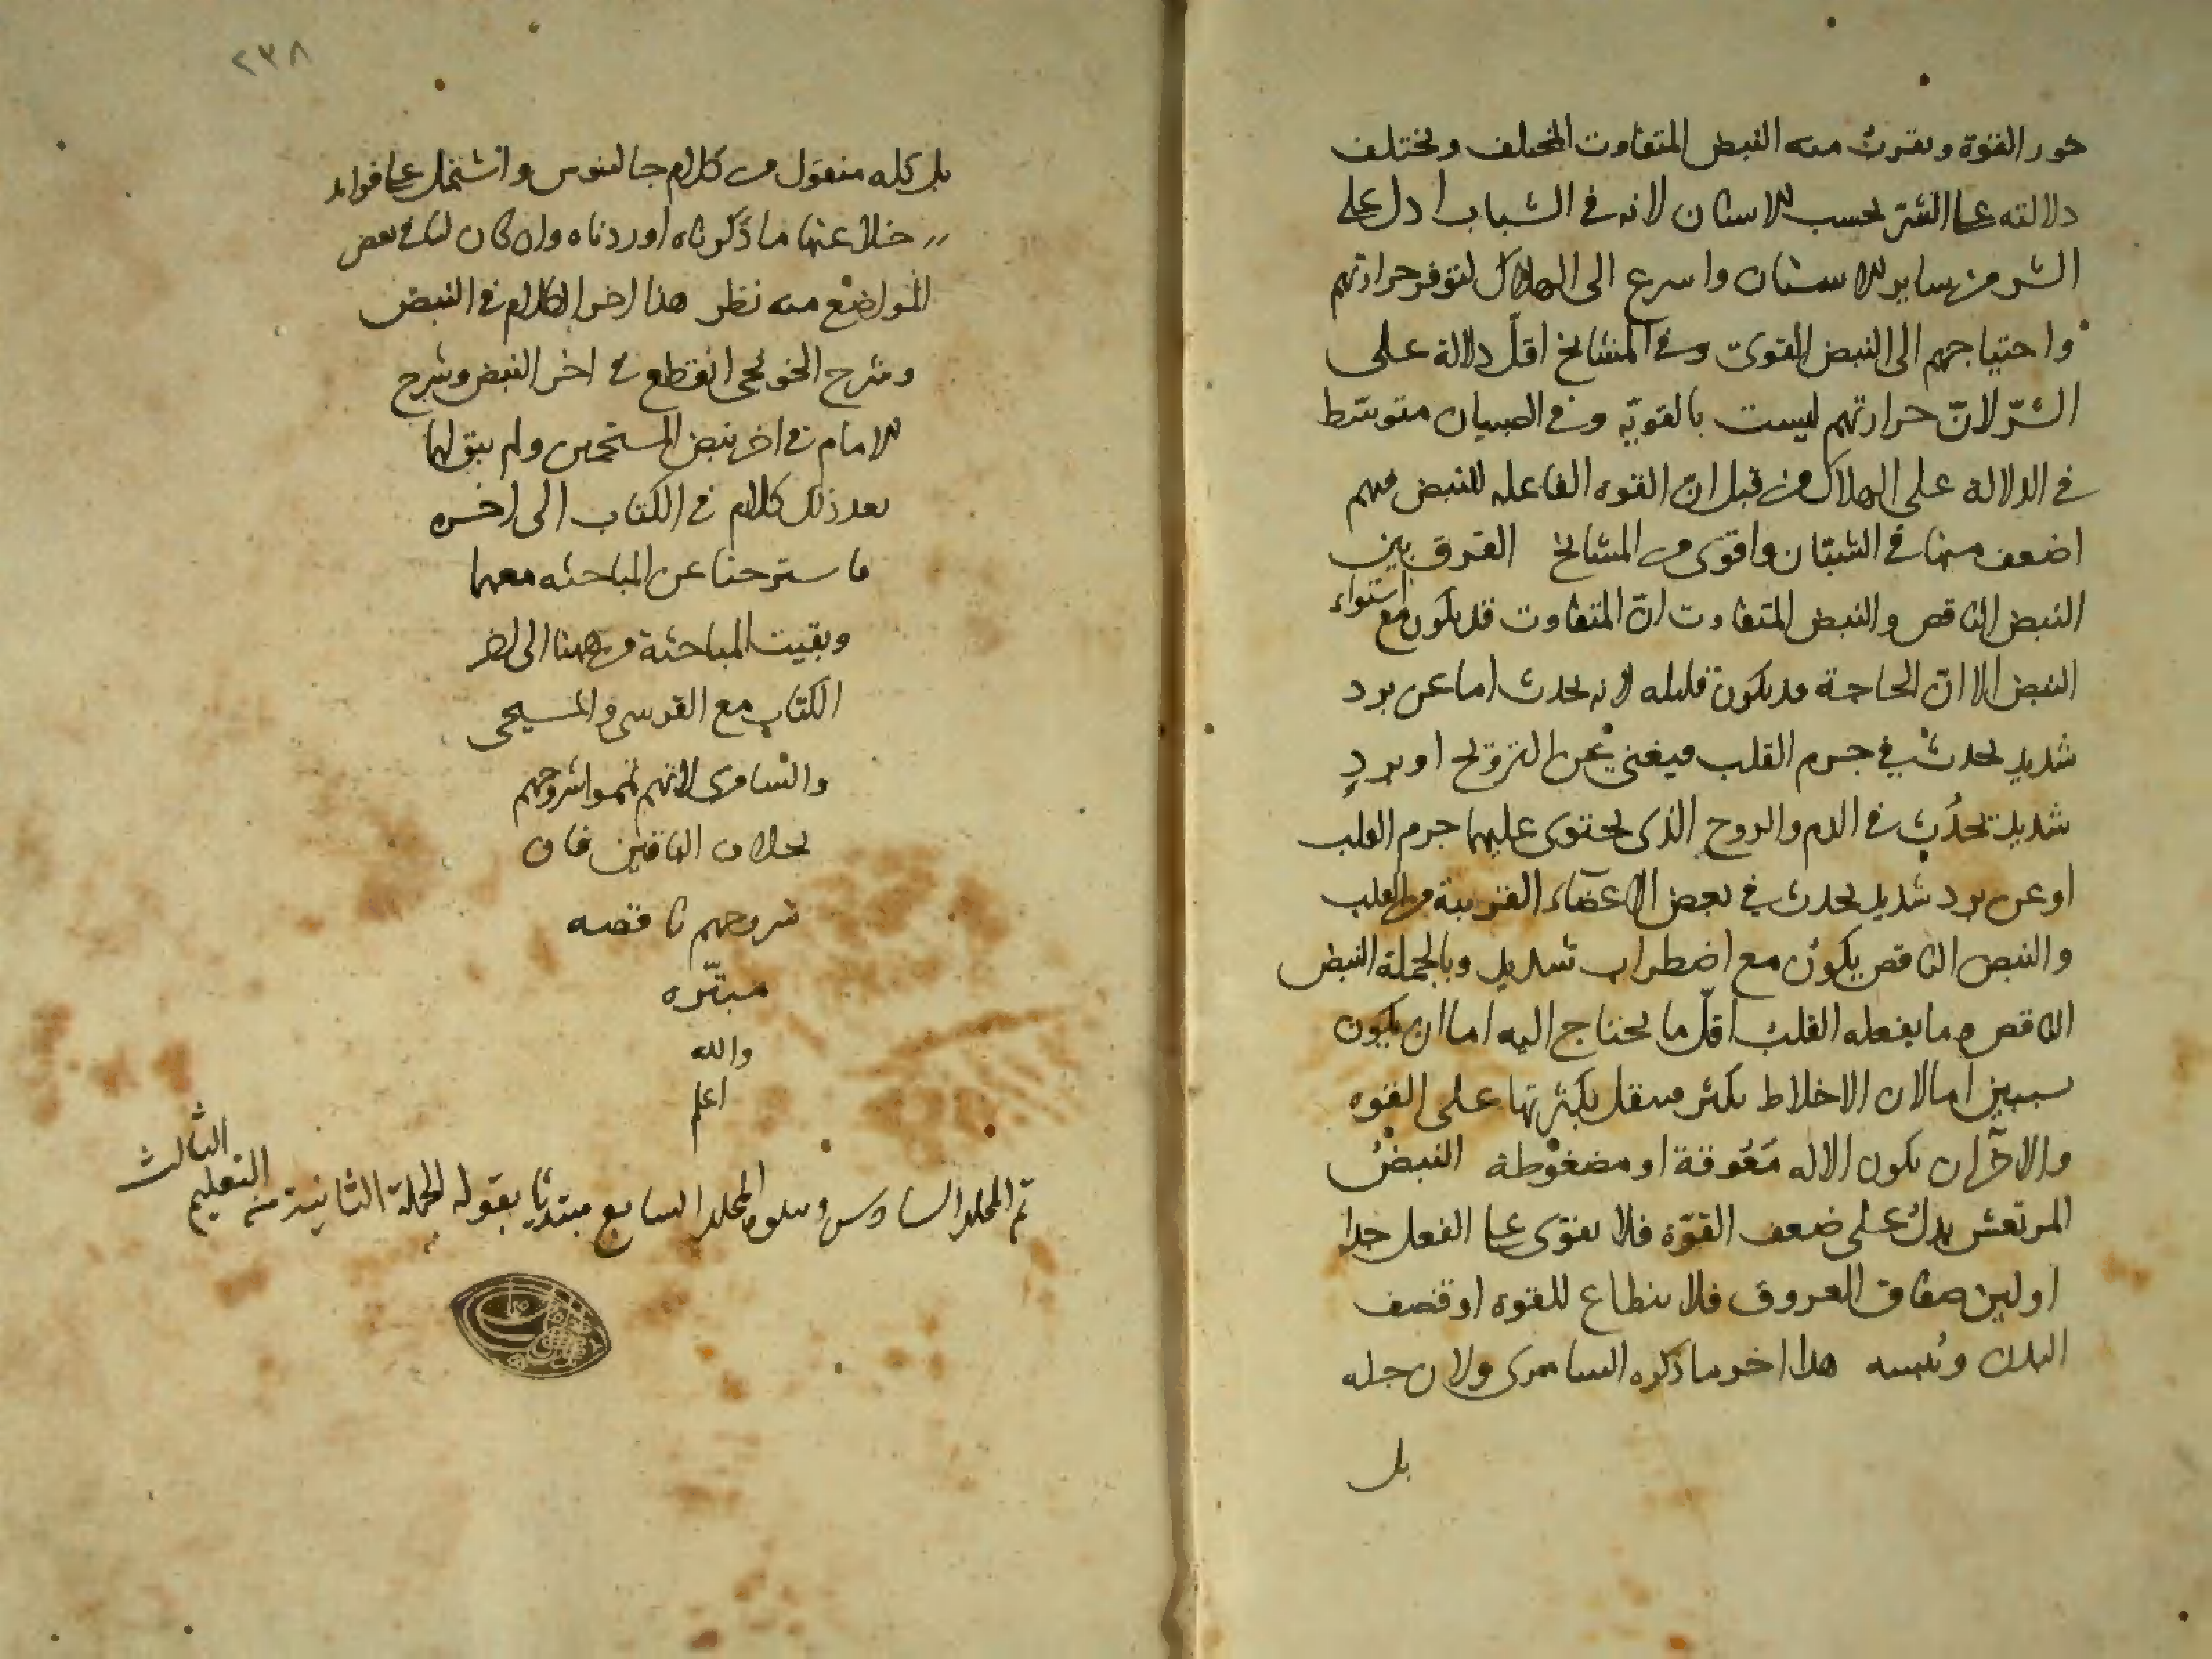 خور القوة ويقرب منه النبض المتفاوت المختلف ويختلف
دلالته على الشر بحسب الاسنان لانه في الشباب ادل على
الشر من ساير الاسنان واسرع الى الهلاك لتوفر حرارتهم
واحتياجهم الى النبض القوى وفى المشايخ اقلّ دلالة على
الشرّ لانّ حرارتهم ليست بالقويّة وفى الصبيان متوسّط
في الدلالة على الهلاك من قبل انّ القوه الفاعله للنبض فيهم
اضعف منها في الشبّان واقوى من المشايخ الفرق بين
النبض الناقص والنبض المتفاوت انّ المتفاوت قد يكون مع استواء
النبض الا انّ الحاجة قد يكون قليله لانه يحدث اما عن برد
شديد يحدث في جرم القلب فيغنى عن الترويح او برد
شديد يحدُث في الدم والروح الذى يحتوى عليهما جرم القلب
او عن برد شديد يحدث في بعض الاعضاء القريبة من القلب
والنبض الناقص يكون مع اضطراب شديد وبالجملة النبض
الناقص هو ما يفعله القلب اقلّ ما يحتاج اليه اما ان يكون
سببين اما لان الاخلاط يكثر فيثقل بكثرتها على القوه
والاخر ان يكون الاله مَعُوقة او مضغوطة النبضُ
المرتعش يدل على ضعف القوّة فلا يقوى على الفعل جدا
او لين صفاق العروق فلا ينطاع للقوه او قصف
البدن ويُبسه هذا اخر ما ذكره السامرى ولان جله
بل
٢٣٨
بل كله منقول من كلام جالينوس واشتمل على فوايد
خلا عنها ما ذكرناه اوردناه وان كان لنا في بعض
المواضع منه نظر هذا اخر الكلام في النبض
وشرح الخونجى انقطع في اخر النبض وشرح
الامام في اخر نبض المستحمين ولم يبق لهما
بعد ذلك كلام في الكتاب الى اخره
فاسترحنا عن المباحثه معهما
وبقيت المباحثة من ههنا الى اخر
الكتاب مع القرسى والمسيحى
والسامرى لانهم تمموا شروحهم
بخلاف الباقين فان
شروحهم ناقصه
مبتّره
والله
اعلم
تم المجلد السادس ويتلوه المجلد السابع مبتديًا بقوله الجملة الثانية من التعليم الثالث